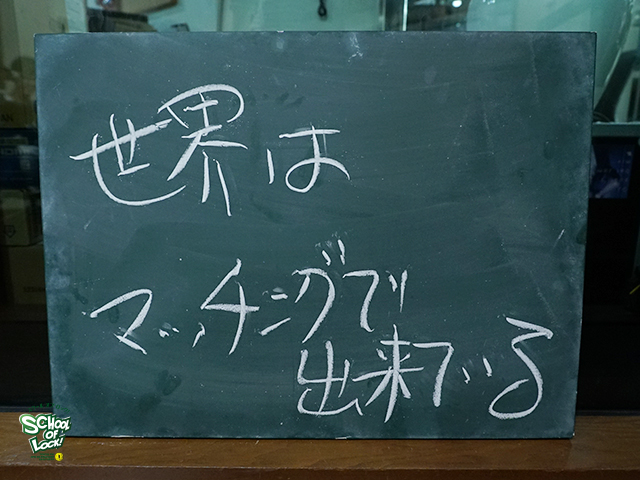 世界は
マッチングで
出来ている
SCHOOL
OF
LOCK!